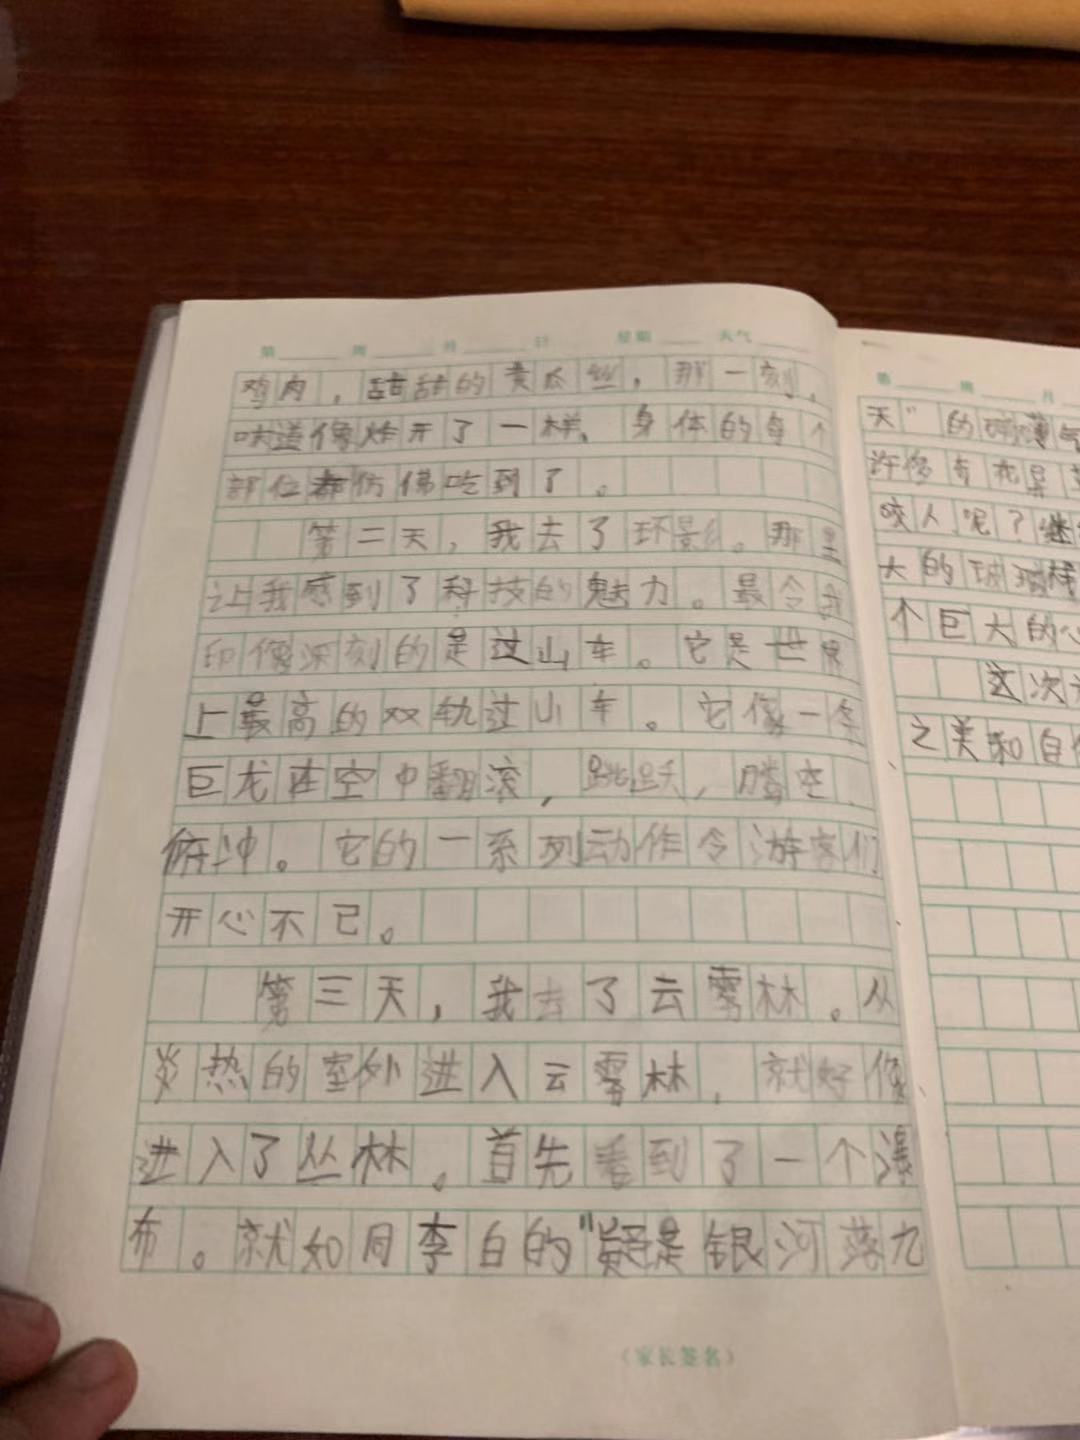 第 周 月 日 星期 天气
鸡肉，甜甜的黄瓜丝，那一刻，
味道像炸开了一样，身体的每个
部位都仿佛吃到了。
第二天，我去了环影。那里
让我感到了科技的魅力。最令我
印像深刻的是过山车。它是世界
上最高的双轨过山车。它像一条
巨龙在空中翻滚，跳跃，腾空
俯冲。它的一系列动作令游客们
开心不已。
第三天，我去了云雾林。从
炎热的室外进入云雾林，就好像
进入了丛林。首先看到了一个瀑
布。就如同李白的“疑是银河落九
（家长签名）
第 周 月
天”的磅礴气
许你有花异
咬人呢？继
大的玻璃样
个巨大的心
这次
之美和自